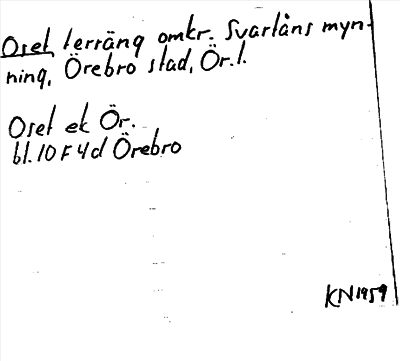 Oset terräng omkr. Svartåns myn-
ning, Örebro stad, Ör.l.
Oset ek Ör.
bl.10 F 4d Örebro
KN 1959